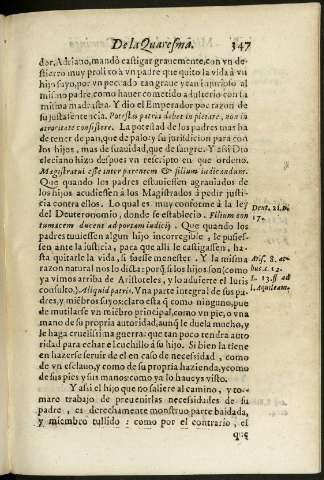 De la Quaresma. 347
dor, Adriano, mandò castigar grauemente, con vn de-
stierro muy prolixo à vn padre que quito la vida à vn
hijo suyo, por vn peccado tan graue y tan
mismo padre, como hauer cometido adulterio con la
misma madastra. Y dio el Emperador por razon de
su justa sentencia. Potestas patris debet in pietate, non in
atrocitate consistere. La potestad de los padres mas ha
de tener de pan, que de palo: y su juridicion para con
los hijos, mas de suauidad, que de sangre. Y assi Dio
cleciano hizo despues vn rescripto en que ordeno.
Magistratui esse inter parentem & filium iudicandum.
Que quando los padres estuuiessen agrauiados de
los hijos acudiessen a los Magistrados à pedir justi-
cia contra ellos. Lo qual es muy conforme à la ley
del Deuteronomio, donde se establecio. Filium con
tumacem ducent ad portam iudicij. Que quando los
padres tuuiessen algun hijo incorregible, le pusies-
sen ante la justicia, para que alli le castigassen, ha-
sta quitarle la vida, si fuesse menester. Y la misma
razon natural nos lo dicta: porq̃ si los hijos son (como
ya vimos arriba de Aristoteles, y lo aduierte el Iuris
consulto.) Aliquid patris. Vna parte integral de sus pa-
dres, y miẽbros suyos: claro esta q̃ como ninguno, pue
de mutilarse vn miẽbro principal, como vn pie, o vna
mano de su propria autoridad, aunq̃ le duela mucho, y
le haga cruelissima guerra: que tan poco tendra auto
ridad para echar el cuchillo à su hijo. Si bien la tiene
en hazerse seruir de el en caso de necessidad, como
de vn esclauo, y como de su propria hazienda, y como
de sus pies y sus manos como ya lo haueys visto.
Y assi el hijo que no saliere al camino, y to-
mare trabajo de preuenirlas necessidades de su
padre, es derechamente monstruo parte baldada,
y miembro tullido: como por el contrario, el
que
Deut. 21. n.
17.
Arist. 8. et
hic. c. 12.
l. 13. ff. ad
l. Aquileam.